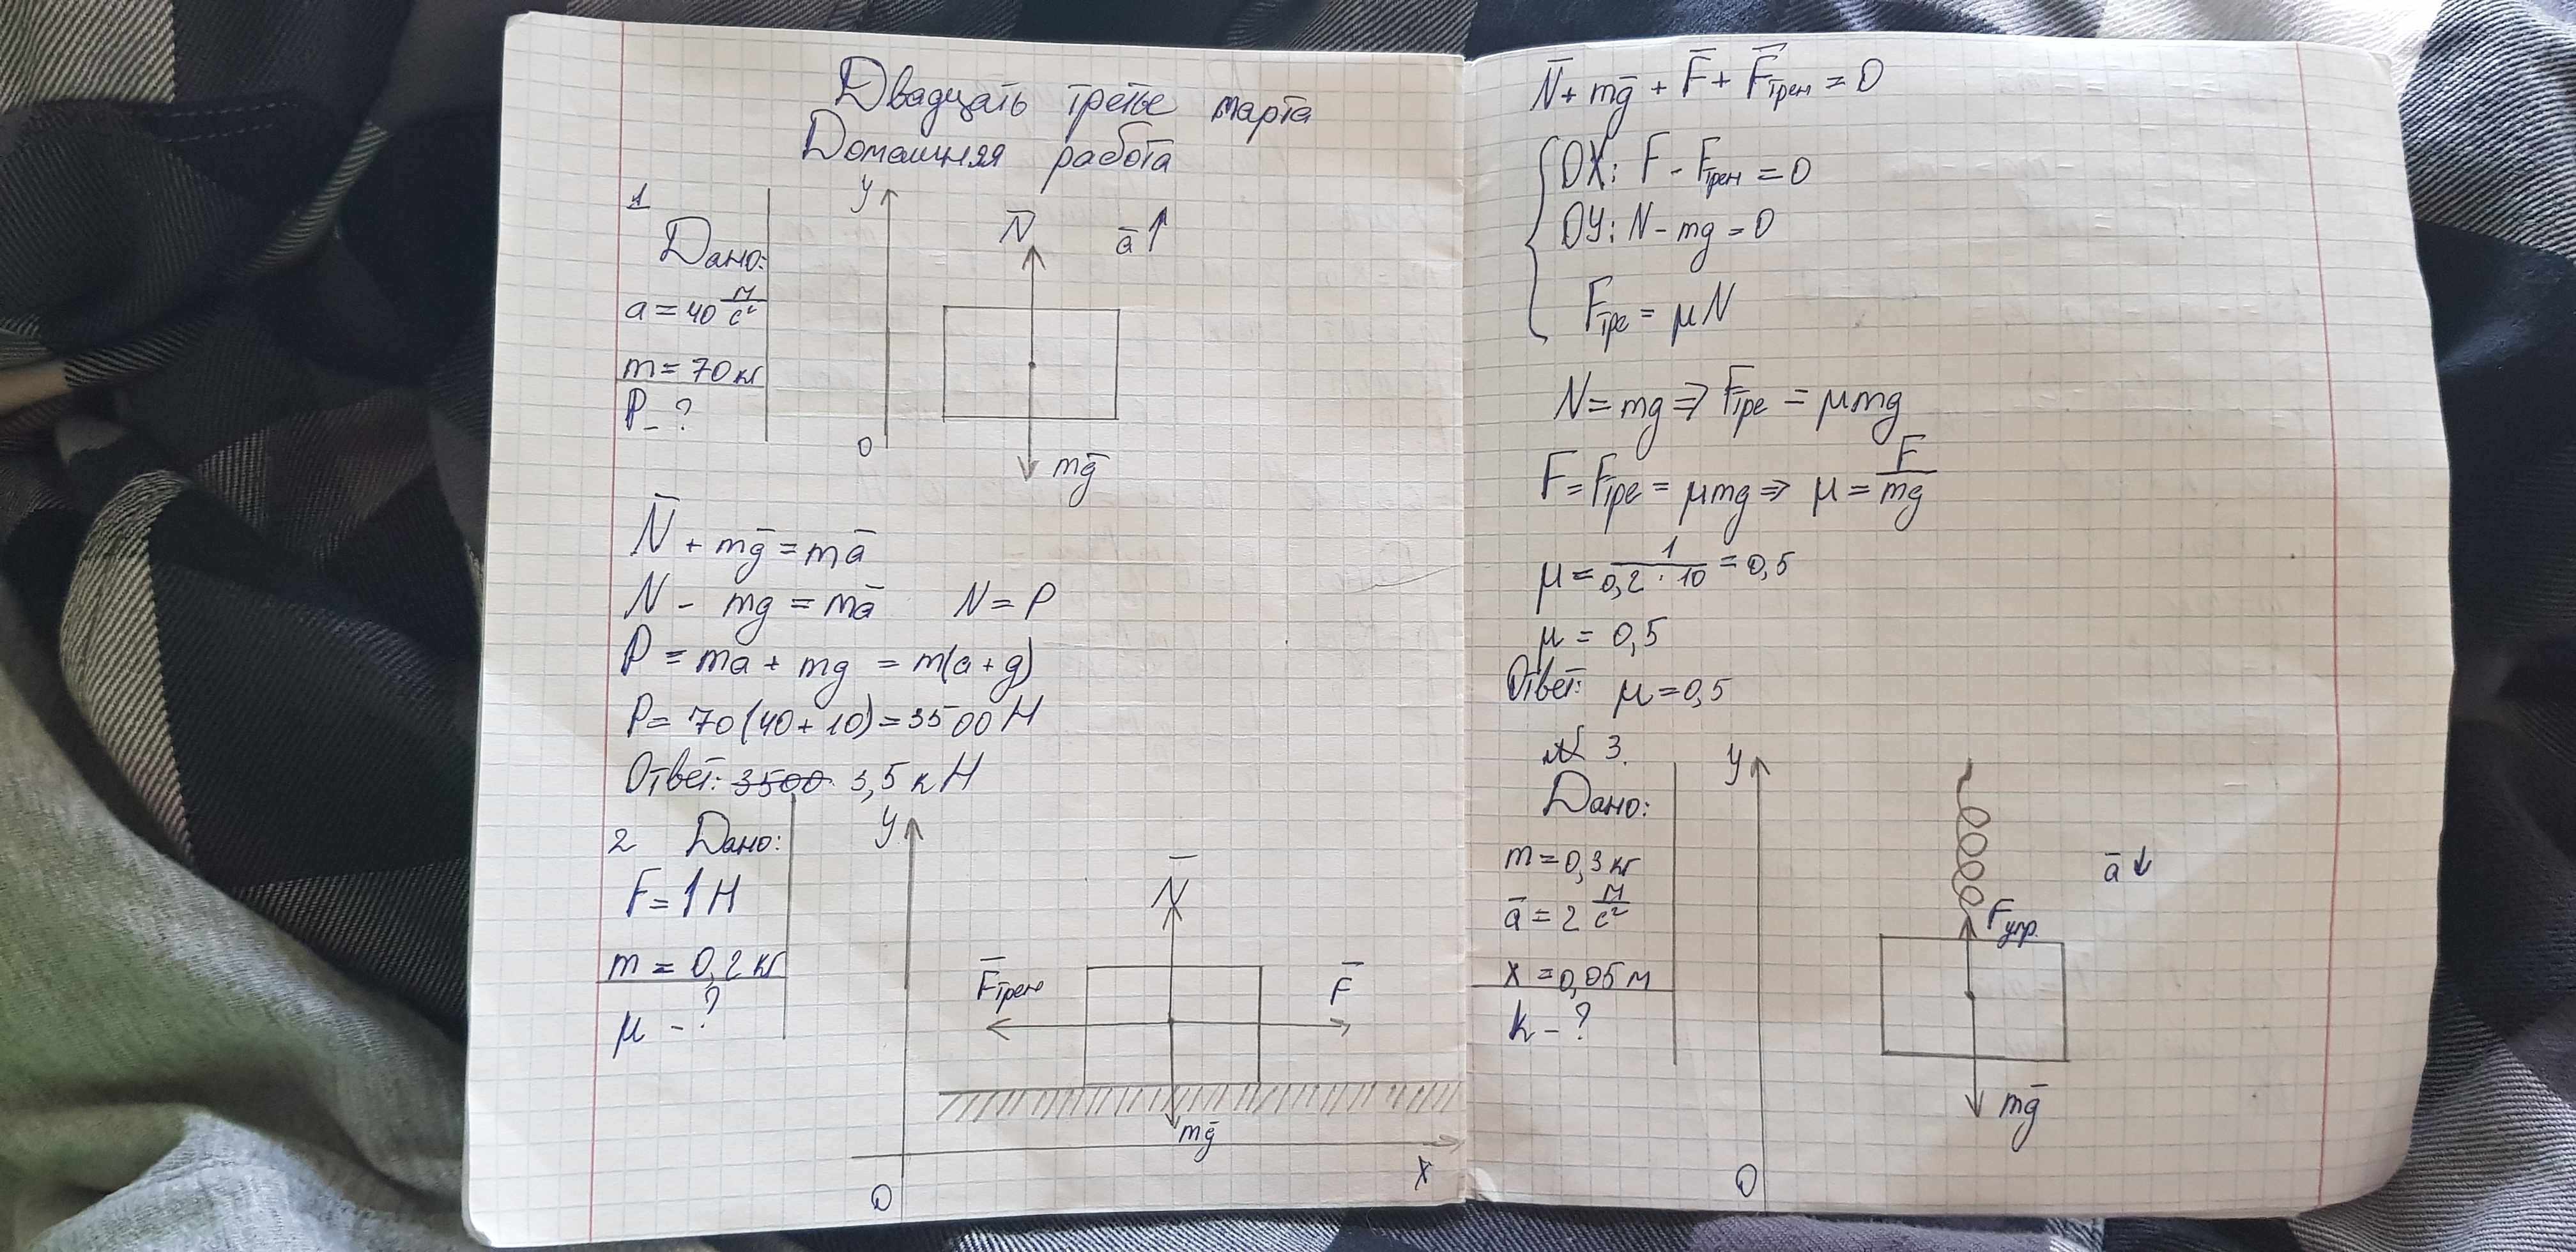 Двадцать третье марта
Домашняя работа
1
Дано:
a = 40 м/с²
m = 70 кг
P - ?
y
N̅
a̅
0
mg̅
N̅ + mg̅ = ma̅
N - mg = ma̅ N = P
P = ma + mg = m(a + g)
P = 70(40 + 10) = 3500 Н
Ответ: ~~3500~~ 3,5 кН
2 Дано:
F = 1 Н
m = 0,2 кг
μ - ?
y
N̅
F̅трен
F̅
mg̅
x
0
N̅ + mg̅ + F̅ + F̅трен = 0
OX: F - Fтрен = 0
OY: N - mg = 0
Fтре = μN
N = mg ⇒ Fтре = μmg
F = Fтре = μmg ⇒ μ = F/mg
μ = 1/0,2 · 10 = 0,5
μ = 0,5
Ответ: μ = 0,5
№ 3.
Дано:
m = 0,3 кг
a̅ = 2 м/с²
x = 0,05 м
k - ?
y
a̅
Fупр.
mg̅
0